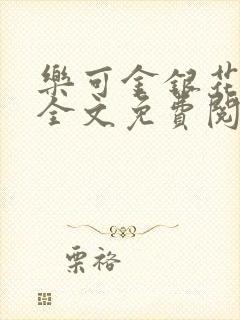 樂可金銀花
全文免費閱
栗裕